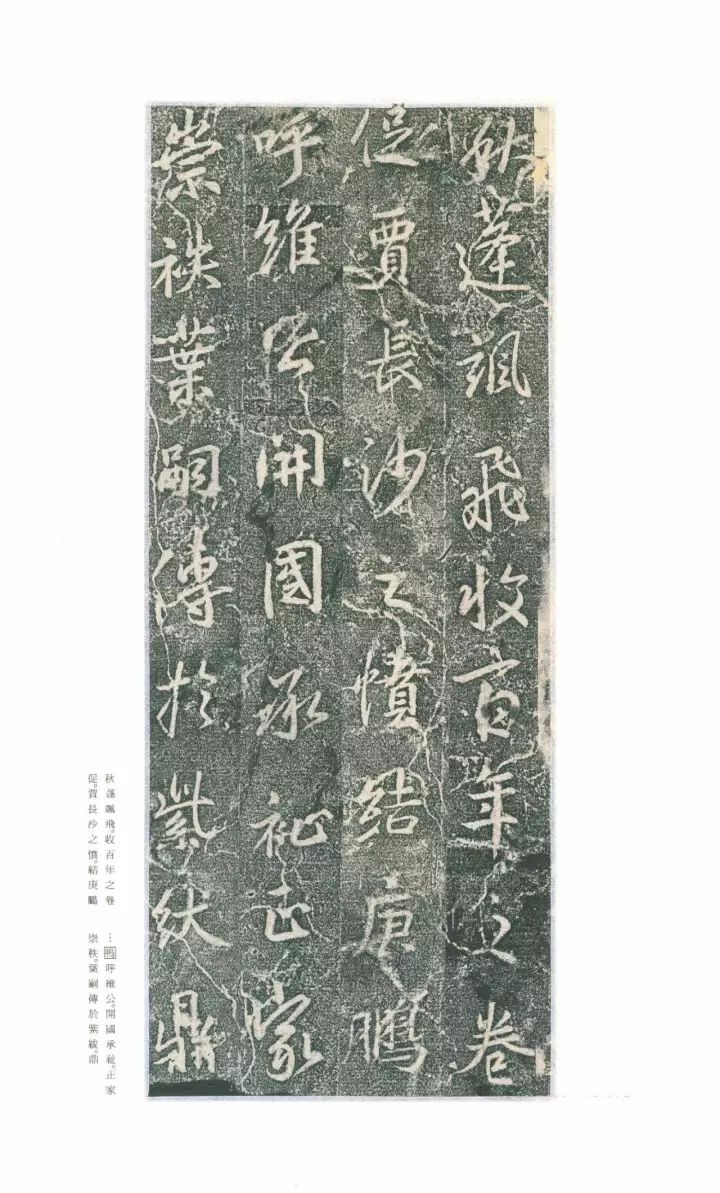 秋蓬颯飛收百年之卷
促賈長沙之憤結庚鵬
呼維公開國承祉正家
崇袟葉嗣傳於紫紱鼎
秋蓬颯飛。收百年之卷
促。賈長沙之憤。結庚鵬
…嗚呼維公。開國承祉。正家
崇秩。葉嗣傳於紫紱。鼎